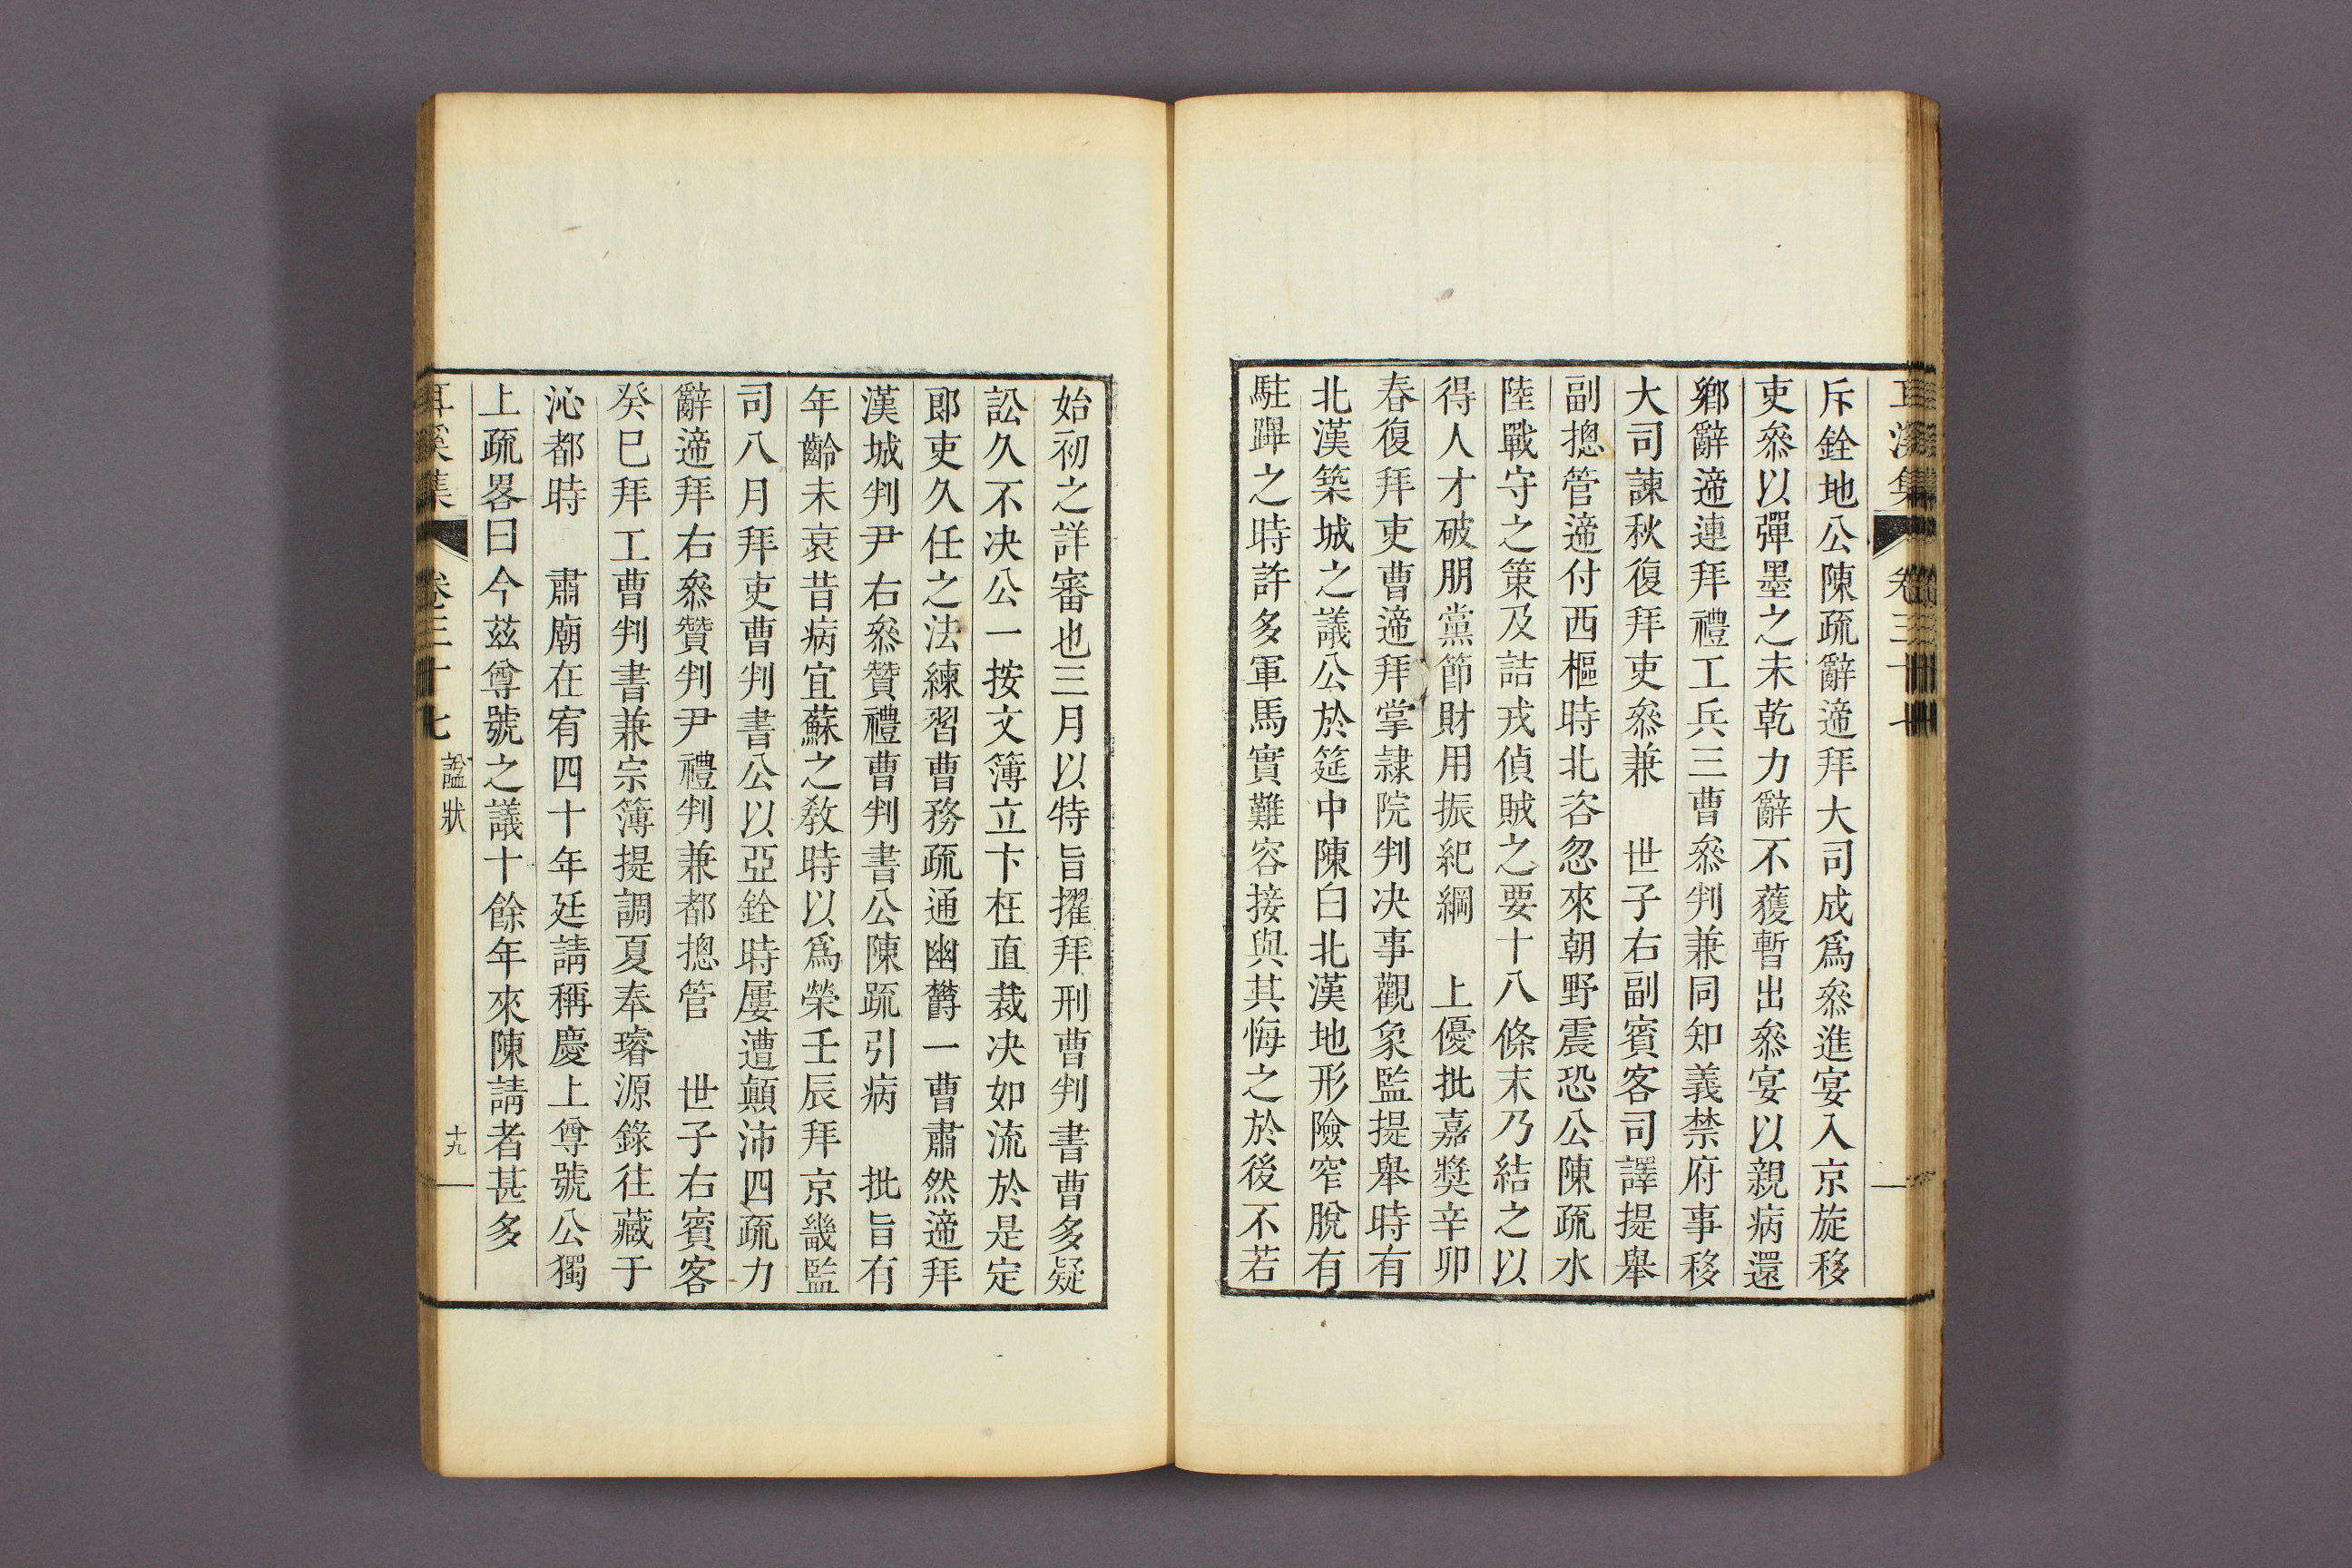 斥銓地公陳疏辭遆拜大司成爲叅進宴入京旋移
吏叅以彈墨之未乾力辭不獲暫出叅宴以親病還
鄕辭遆連拜禮工兵三曹叅判兼同知義禁府事移
大司諫秋復拜吏叅兼　世子右副賓客司譯提舉
副摠管遆付西樞時北咨忽來朝野震恐公陳疏水
陸戰守之策及詰戎偵賊之要十八條末乃結之以
得人才破朋黨節財用振紀綱　上優批嘉奬辛卯
春復拜吏曹遆拜掌隷院判决事觀象監提舉時有
北漢築城之議公於筵中陳白北漢地形險窄脫有
駐蹕之時許多軍馬實難容接與其悔之於後不若
始初之詳審也三月以特旨擢拜刑曹判書曹多疑
訟久不决公一按文簿立卞枉直裁决如流於是定
郞吏久任之法練習曹務疏通幽欝一曹肅然遆拜
漢城判尹右叅贊禮曹判書公陳䟽引病　批旨有
年齡未衰昔病宜蘇之敎時以爲榮壬辰拜京畿監
司八月拜吏曹判書公以亞銓時屢遭顚沛四疏力
辭遆拜右叅贊判尹禮判兼都摠管　世子右賓客
癸巳拜工曹判書兼宗簿提調夏奉璿源錄往藏于
沁都時　肅廟在宥四十年廷請稱慶上尊號公獨
上疏畧曰今茲尊號之議十餘年來陳請者甚多
耳溪集　卷三十七　諡狀　十九